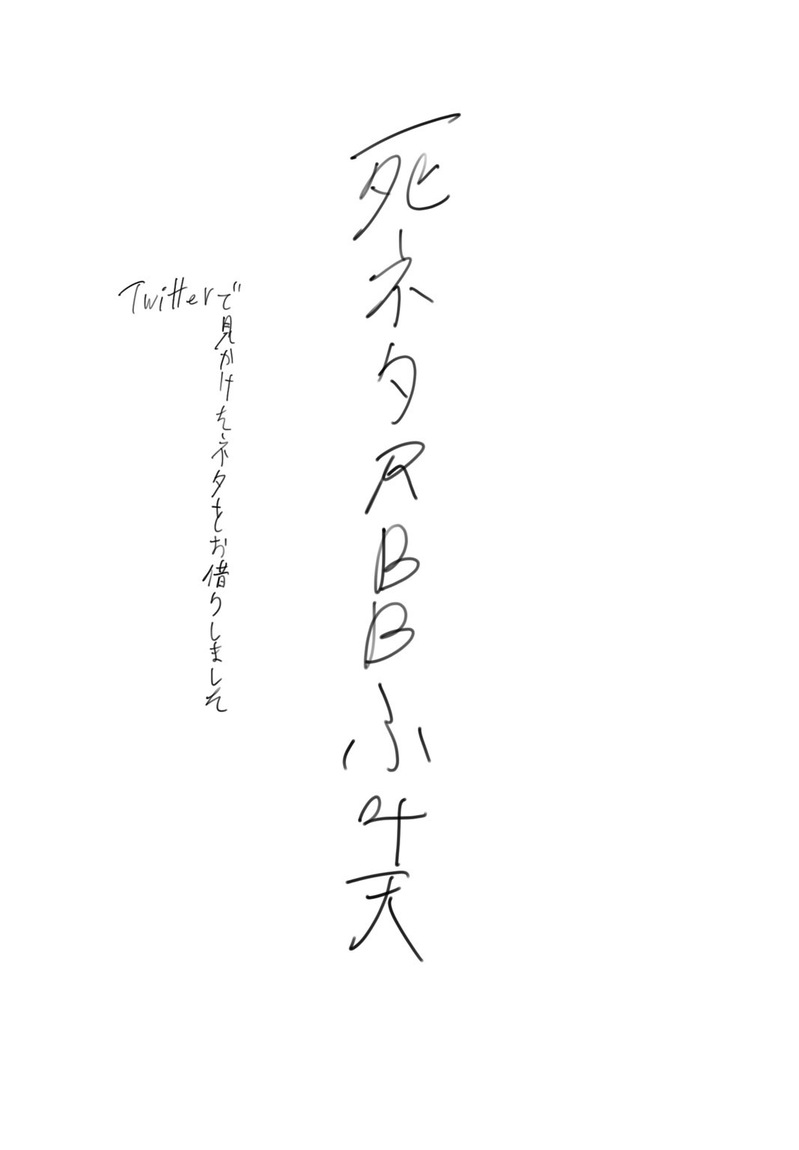 死ネタRBBふ叶天
Twitterで見かけたネタをお借りしました